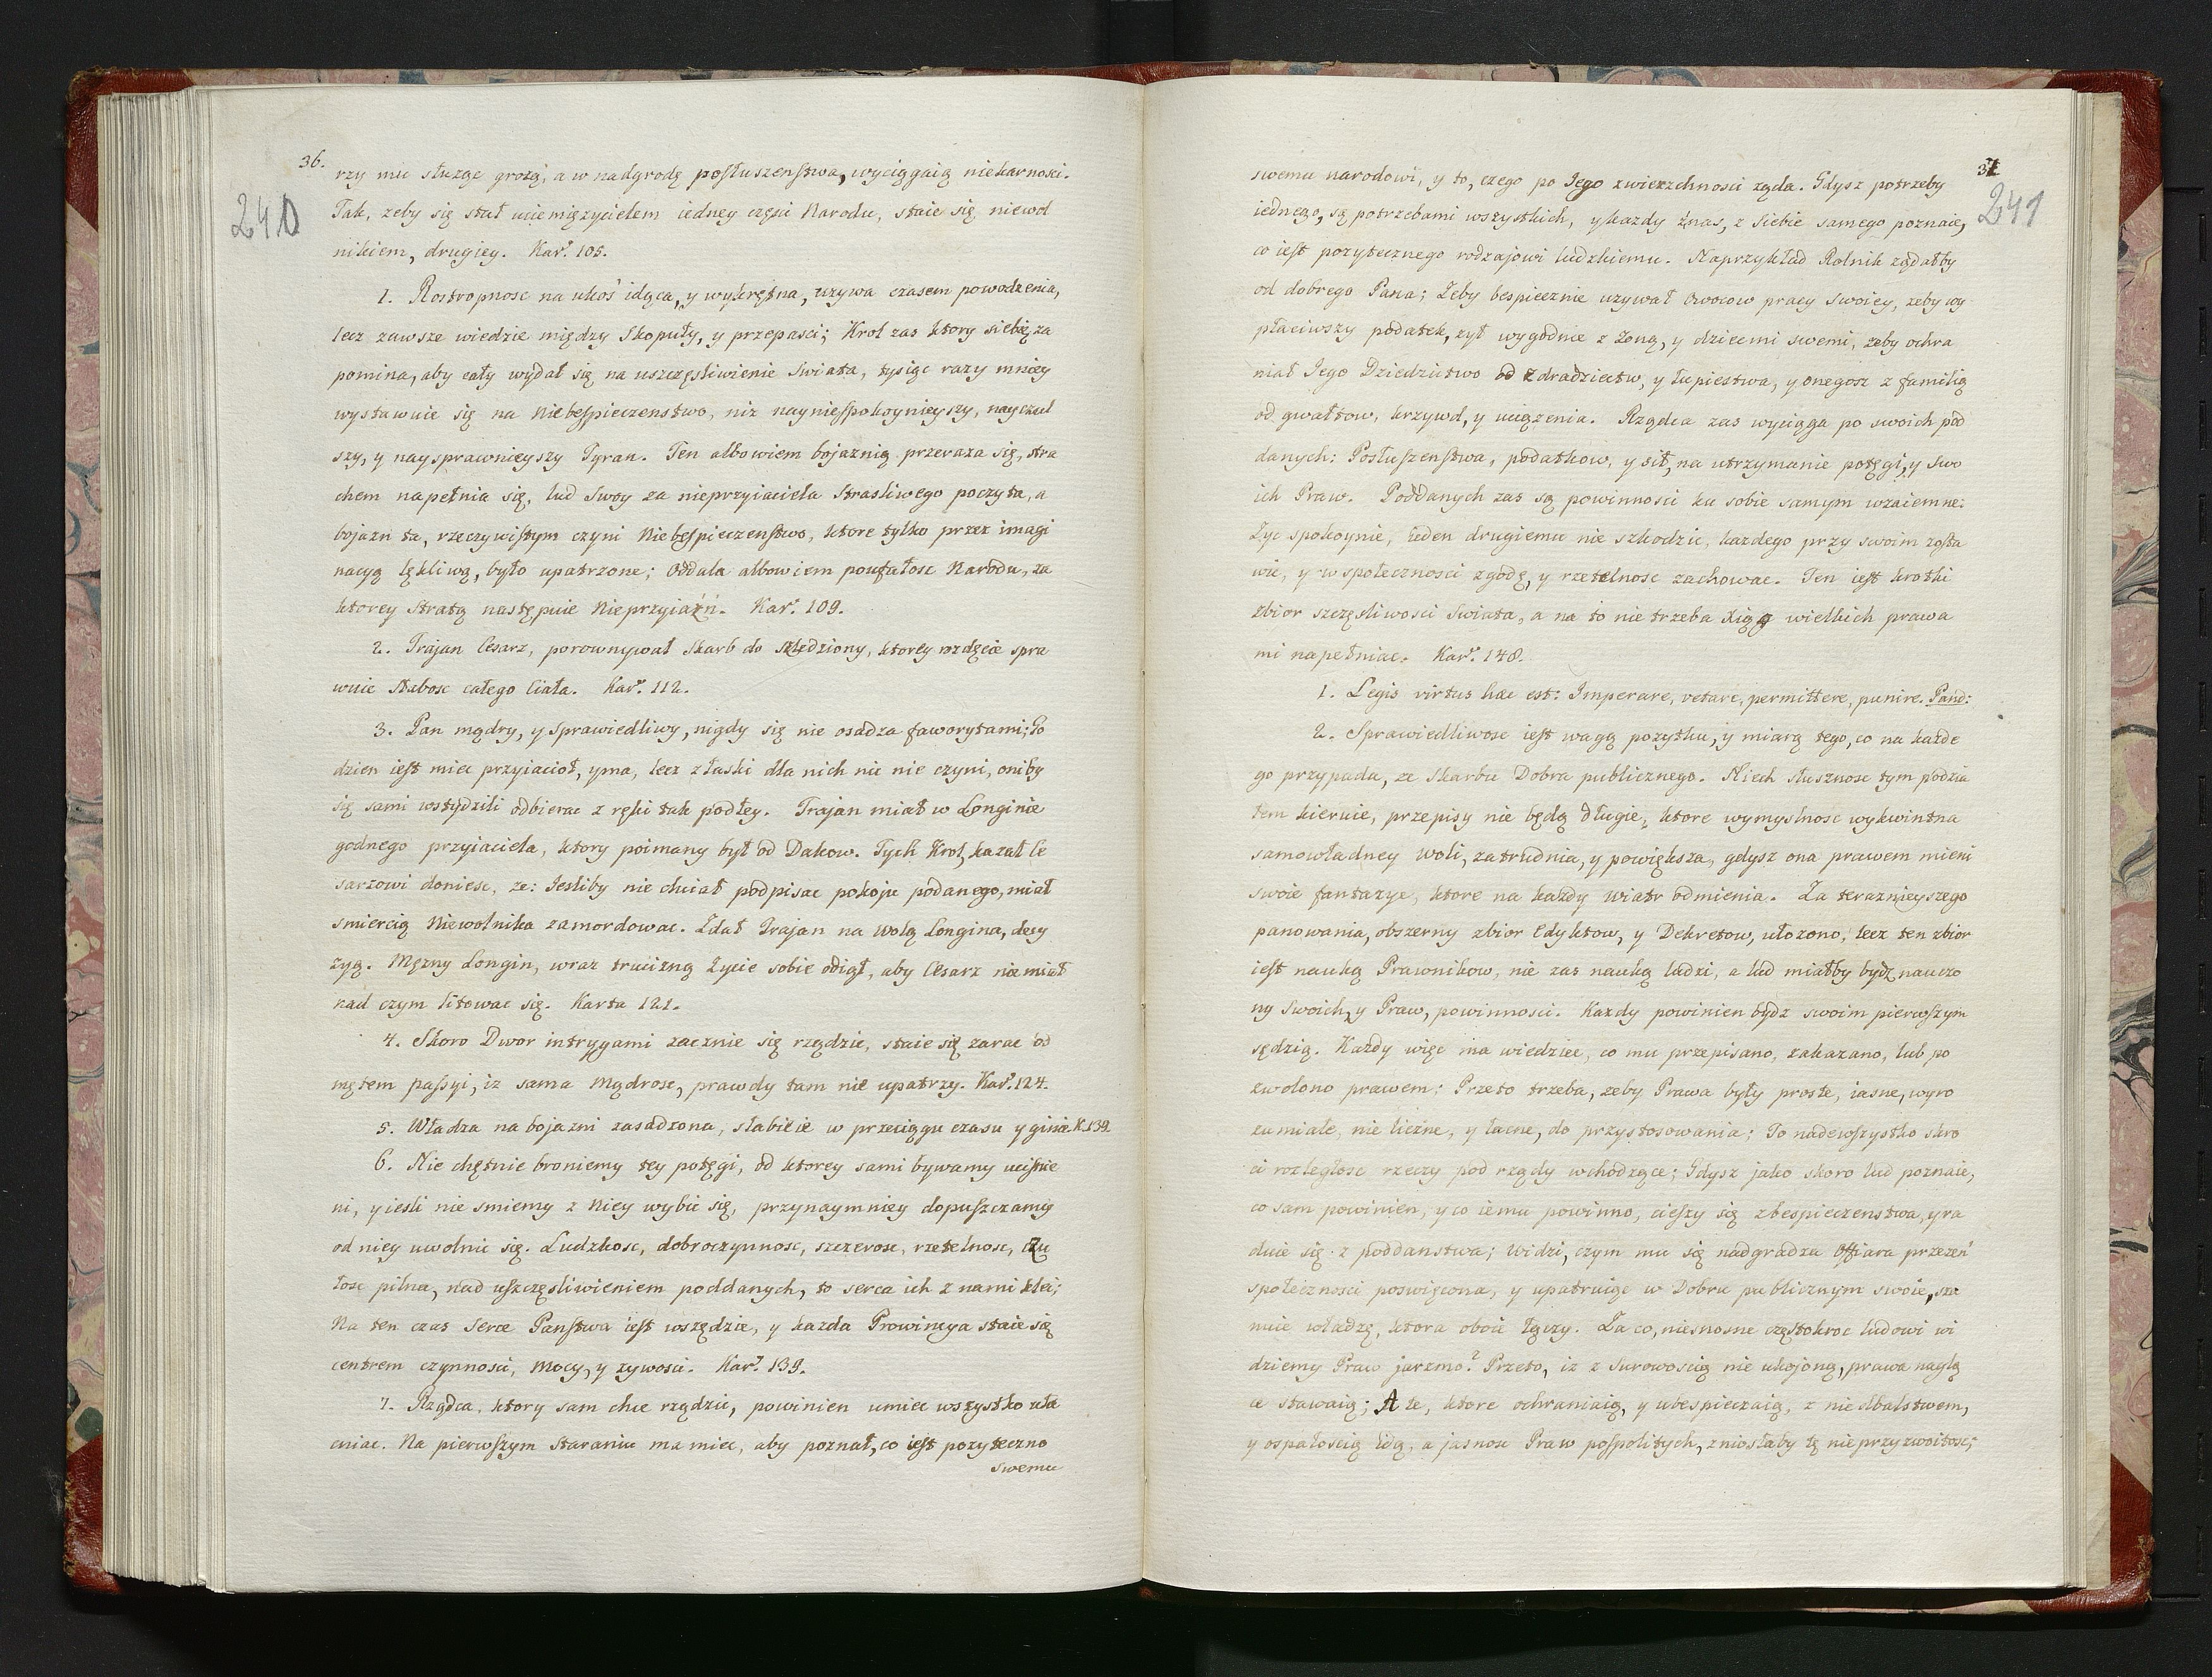 36.
240
rzy mu służąc grożą, a w nadgrodę posłuszenstwa, wyciągaią niekarnosci.
Tak, zeby się stał uciemięzycielem iedney częsci Narodu, staie się niewol
nikiem, drugiey. Kar.ᵗ 105.
1. Rostropnosc na ukos idąca, y wykrętna, uzywa czasem powodzenia,
lecz zawsze wiedzie między Skopuły, y przepasci; Krol zas ktory siebie za
pomina, aby cały wydał się na uszczęsliwienie Swiata, tysiąc razy mniey
wystawuie się na Niebespieczenstwo, niz nayniespokoynieyszy, nayczul
szy, y naysprawnieyszy Tyran. Ten albowiem bojaznią przeraza się, stra
chem napełnia się, lud Swoy za nieprzyiaciela Strasliwego poczyta, a
bojazn ta, rzeczywistym czyni Niebespieczenstwo, ktore tylko przez imagi
nacyą lękliwą, było upatrzone; Oddala albowiem poufałosc Narodu, za
ktorey Stratą następuie Nieprzyiaźń. Kar.ᵗ 109.
2. Trajan Cesarz, porownywał Skarb do Sledziony, ktorey wzdęcie spra
wuie Słabosc całego Ciała. Kar.ᵗ 112.
3. Pan mądry, y Sprawiedliwy, nigdy się nie osadza faworytami; Go
dzien iest miec przyiacioł, y ma, lecz z łaski dla nich nic nie czyni, oniby
się sami wstydzili odbierac z ręki tak podłey. Trajan miał w Longinie
godnego przyiaciela, ktory poimany był od Dakow. Tych Krol, kazał Ce
sarzowi doniesc, ze: Iesliby nie chciał podpisac pokoju podanego, miał
smiercią Niewolnika zamordowac. Zdał Trajan na wolą Longina, decy
zyą. Męzny Longin, wraz trucizną Zycie sobie odiął, aby Cesarz nie miał
nad czym litowac się. Karta 121.
4. Skoro Dwor intrygami zacznie się rządzic, staie się zaraz od
mętem passyi, iz sama Mądrosc, prawdy tam nie upatrzy. Kar.ᵗ 124.
5. Władza na bojazni zasadzona, słabieie w przeciągu czasu y ginie K. 139.
6. Nie chętnie broniemy tey potęgi, od ktorey sami bywamy ucisnie
ni, y iesli nie smiemy z Niey wybic się, przynaymniey dopuszczamy
od niey uwolnic się. Ludzkosc, dobroczynnosc, szczerosc, rzetelnosc, czu
łosc pilna, nad uszczęsliwieniem poddanych, to serca ich z nami klei;
Na ten czas Serce Panstwa iest wszędzie, y kazda Prowincya staie się
centrem czynnosci, Mocy, y zywosci. Kar.ᵗ 139.
7. Rządca, ktory sam chce rządzic, powinien umiec wszystko uła
cniac. Na pierwszym Staraniu ma miec, aby poznał, co iest pozyteczno
swemu
37
241
swemu narodowi, y to, czego po Iego zwierzchnosci ząda. Gdysz potrzeby
iednego, są potrzebami wszystkich, y kazdy znas, z Siebie samego poznaie,
co iest pozytecznego rodzajowi ludzkiemu. Naprzykład Rolnik ządałby
od dobrego Pana; Zeby bespiecznie uzywał Owocow pracy Swoiey, zeby wy
płaciwszy podatek, zył wygodnie z Zoną, y dziecmi swemi, zeby ochra
niał Iego Dziedzictwo od zdradziectw, y łupiestwa, y onegosz z familią
od gwałtow, krzywd, y uciązenia. Rządca zas wyciąga po swoich pod
danych: Posłuszenstwa, podatkow, y sił, na utrzymanie potęgi, y Swo
ich Praw. Poddanych zas są powinnosci ku sobie samym wzaiemne:
Zyc spokoynie, ieden drugiemu nie szkodzic, kazdego przy swoim zosta
wic, y w społecznosci zgodę, y rzetelnosc zachowac. Ten iest krotki
zbior szczęsliwosci Swiata, a na to nie trzeba Xiąg wielkich prawa
mi napełniac. Kar.ᵗ 148.
1. Legis virtus hæc est: Imperare, vetare, permittere, punire. Pand:
2. Sprawiedliwosc iest wagą pozytku, y miarą tego, co na kazde
go przypada, ze Skarbu Dobra publicznego. Niech słusznosc tym podzia
łem kieruie, przepisy nie będą długie, ktore wymyslnosc wykwintna
samowładney woli, zatrudnia, y powiększa, gdysz ona prawem mieni
swoie fantazye, ktore na kazdy wiatr odmienia. Za teraznieyszego
panowania, obszerny zbior Edyktow, y Dekretow, ułozono, lecz ten zbior
iest nauką Prawnikow, nie zas nauką ludzi, a lud miałby bydz nauczo
ny Swoich, y Praw, powinnosci. Kazdy powinien bydz swoim pierwszym
sędzią. Kazdy więc ma wiedziec, co mu przepisano, zakazano, lub po
zwolono prawem; Przeto trzeba, zeby Prawa były proste, iasne, wyro
zumiałe, nie liczne, y łacne, do przystosowania; To nadewszystko skro
ci rozległosc rzeczy pod rządy wchodzące; Gdysz jako skoro lud poznaie,
co sam powinien, y co iemu powinno, cieszy się zbespieczenstwa, y ra
duie się z poddanstwa; Widzi, czym mu się nadgradza Offiara przezeń
społecznosci poswięcona, y upatruiąc w Dobru publicznym swoie, sza
nuie władzę, ktora oboie łączy. Za co, niesnosne częstokroc ludowi wi
dziemy Praw jarzmo? Przeto, iz z Surowoscią nie ukojoną, prawa naglą
ce stawaią; A te, ktore ochraniaią, y ubespieczaią, z niedbalstwem,
y ospałoscią idą, a jasnosc Praw pospolitych, zniosłaby tę nieprzyzwoitosc;